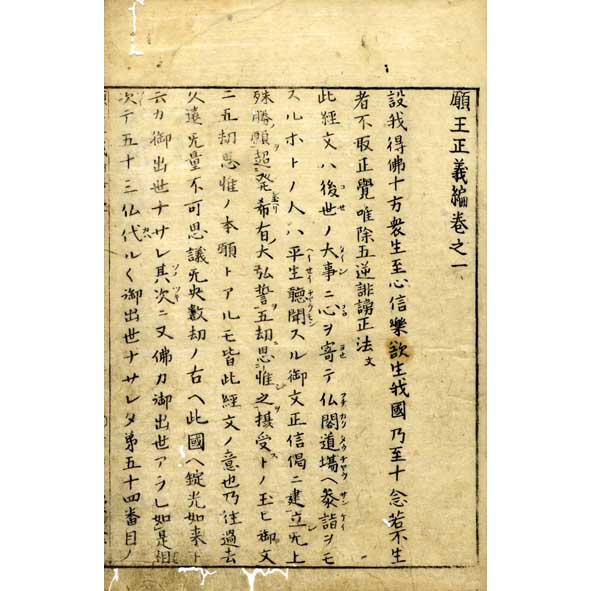 願王正義編巻之一
設我得佛十方衆生至心信樂欲生我國乃至十念若不生
者不取正覺唯除五逆誹謗正法文
此経文ハ後世ノ大事ニ心ヲ寄テ仏閣道場ヘ参詣ヲモ
スルホトノ人ハ平生聴聞スル御文正信偈ニ建立无上
殊勝願超発希有大弘誓五劫思惟之摂受トノ玉ヒ御文
ニ五劫思惟ノ本願トアルモ皆此経文ノ意也乃往過去
久遠无量不可思議无央數劫ノ古ヘ此國ヘ錠光如来ト
カ御出世ナサレ其次ニ又佛カ御出世アラレ如是相
次テ五十三仏代ル〱御出世ナサレタ第五十四番目ノ